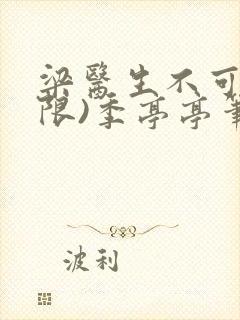 梁醫生不可
限)季亭亭筆
波利